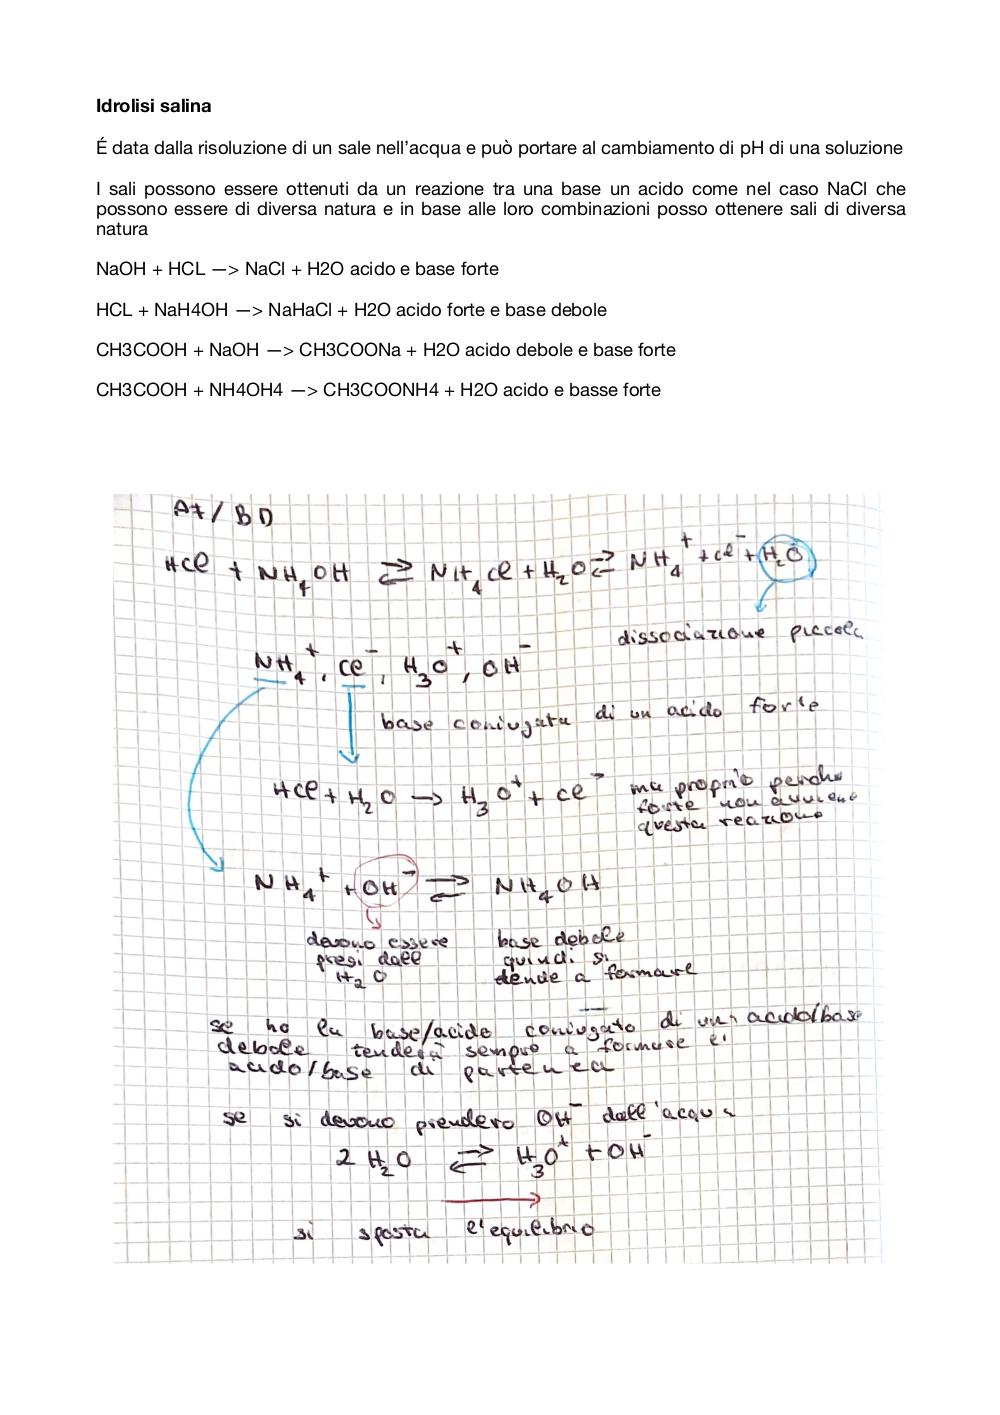 Idrolisi salina
É data dalla risoluzione di un sale nell'acqua e può portare al cambiamento di pH di una soluzione
I sali possono essere ottenuti da un reazione tra una base un acido come nel caso NaCl che
possono essere di diversa natura e in base alle loro combinazioni posso ottenere sali di diversa
natura
NaOH + HCL —> NaCl + H2O acido e base forte
HCL + NaH4OH —> NaHaCl + H2O acido forte e base debole
CH3COOH + NaOH —> CH3COONa + H2O acido debole e base forte
CH3COOH + NH4OH4 —> CH3COONH4 + H2O acido e basse forte
AF/BD
HCl + NH₄OH ⇄ NH₄Cl + H₂O ⇄ NH₄⁺ + Cl⁻ + H₂O
dissociazione piccola
NH₄⁺, Cl⁻, H₃O⁺, OH⁻
base coniugata di un acido forte
HCl + H₂O → H₃O⁺ + Cl⁻
ma proprio perche
forte non avviene
questa reazione
NH₄⁺ + OH⁻ ⇄ NH₄OH
devono essere
presi dall
H₂O
base debole
quindi si
tende a formare
se ho la base/acido coniugato di un acido/base
debole tenderà sempre a formare l'
acido/base di partenza
se si devono prendere OH⁻ dall'acqua
2 H₂O ⇄ H₃O⁺ + OH⁻
si sposta l'equilibrio